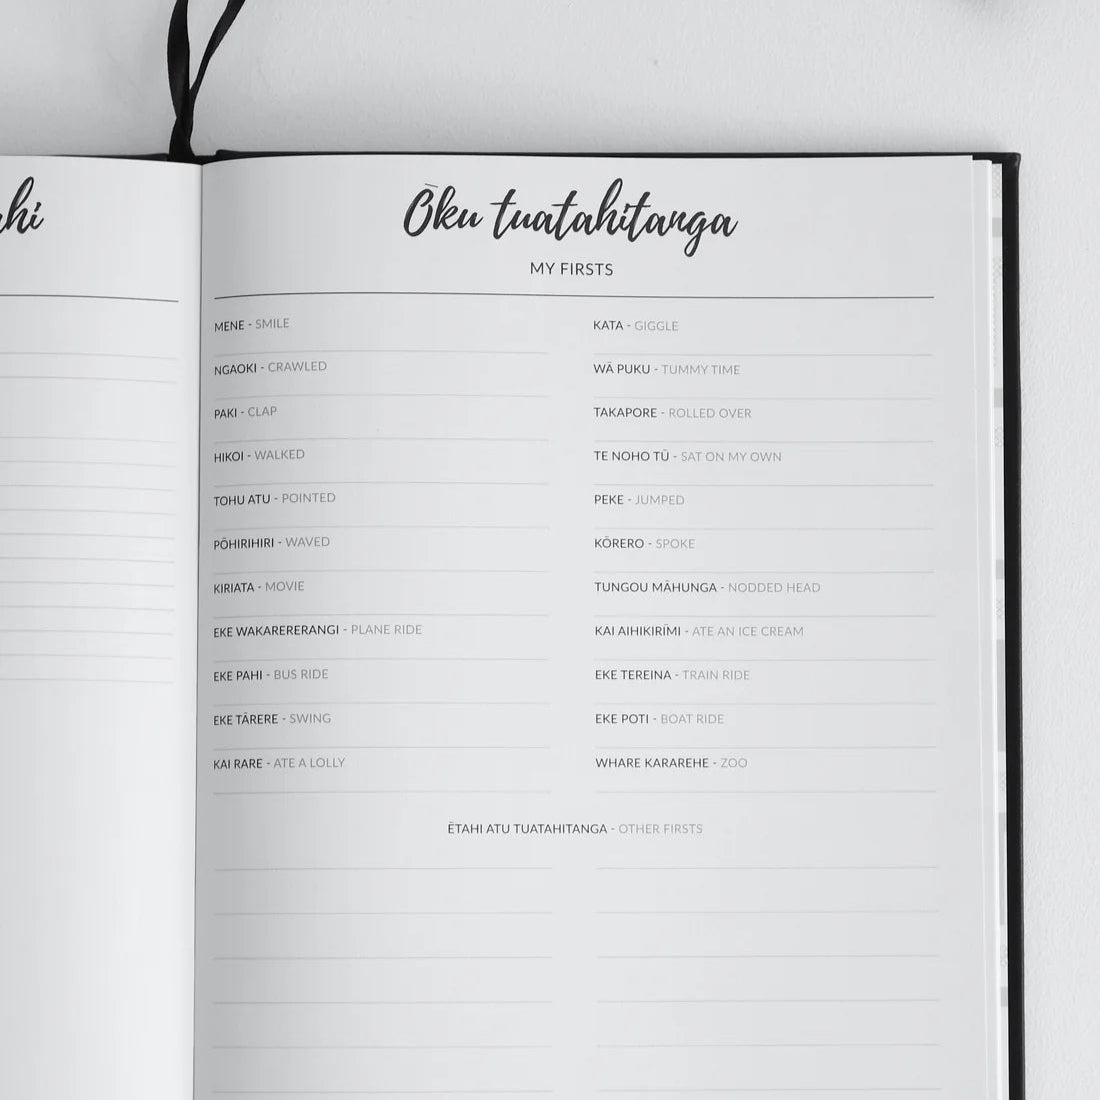 Ōku tuatahitanga
MY FIRSTS
MENE - SMILE
NGAOKI - CRAWLED
PAKI - CLAP
HIKOI - WALKED
TOHU ATU - POINTED
PŌHIRIHIRI - WAVED
KIRIATA - MOVIE
EKE WAKARERERANGI - PLANE RIDE
EKE PAHI - BUS RIDE
EKE TĀRERE - SWING
KAI RARE - ATE A LOLLY
KATA - GIGGLE
WĀ PUKU - TUMMY TIME
TAKAPORE - ROLLED OVER
TE NOHO TŪ - SAT ON MY OWN
PEKE - JUMPED
KŌRERO - SPOKE
TUNGOU MĀHUNGA - NODDED HEAD
KAI AIHIKIRĪMI - ATE AN ICE CREAM
EKE TEREINA - TRAIN RIDE
EKE POTI - BOAT RIDE
WHARE KARAREHE - ZOO
ĒTAHI ATU TUATAHITANGA - OTHER FIRSTS